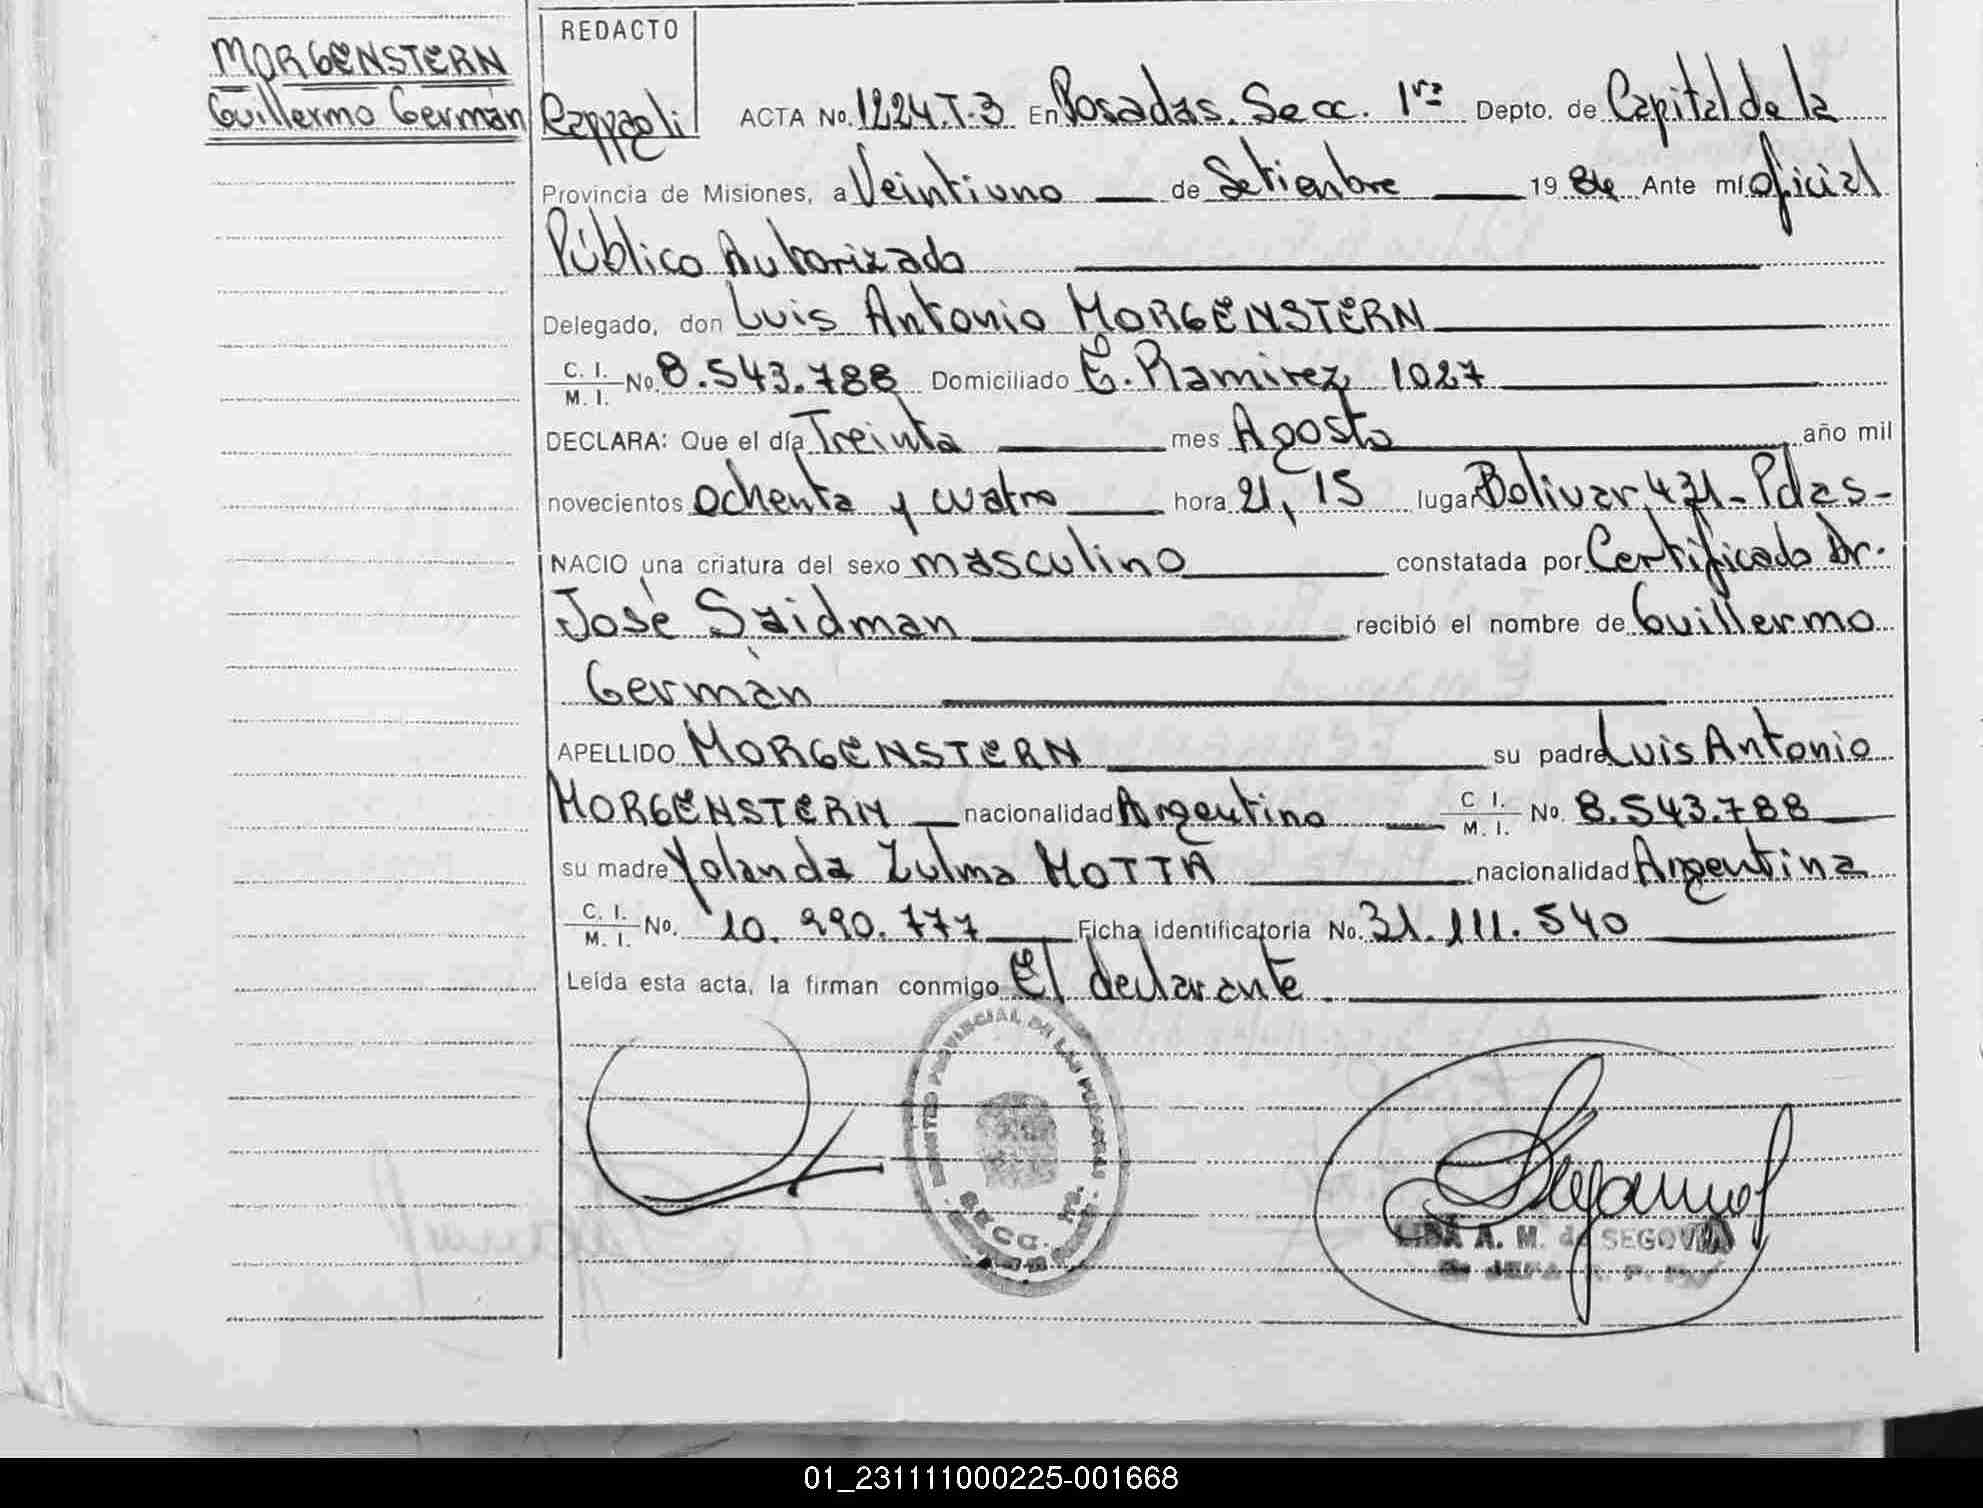 MORGENSTERN
Guillermo Germán
REDACTO
ACTA No. 1224.T.3 En Posadas. Secc. 1ra Depto. de Capital de la
Provincia de Misiones, a Veintiuno de Setiembre 1984 Ante mí Oficial
Público Autorizado
Delegado, don Luis Antonio MORGENSTERN
C. I. M. I. No. 8.543.788 Domiciliado E. Ramirez 1027
DECLARA: Que el día Treinta mes Agosto año mil
novecientos ochenta y cuatro hora 21,15 lugar Bolivar 431-Pdas-
NACIO una criatura del sexo masculino constatada por Certificado Dr.
José Saidman recibió el nombre de Guillermo
Germán
APELLIDO MORGENSTERN su padre Luis Antonio
MORGENSTERN nacionalidad Argentino C I. M. I. No. 8.543.788
su madre Yolanda Zulma MOTTA nacionalidad Argentina
C. I. M. I. No. 10.990.777 Ficha identificatoria No. 31.111.540
Leída esta acta, la firman conmigo El declarante
REGISTRO PROVINCIAL DE LAS PERSONAS
SECC.
A. M. de SEGOVIA
JEFA
01_231111000225-001668